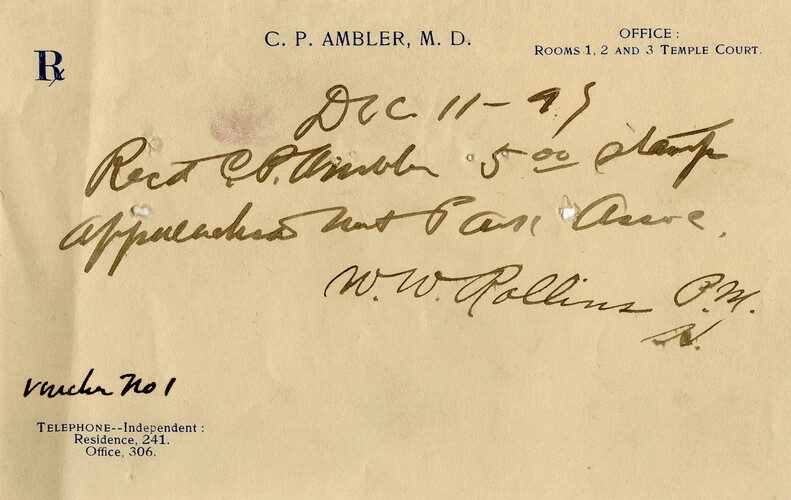 C. P. AMBLER, M. D.
OFFICE:
ROOMS 1, 2 AND 3 TEMPLE COURT.
℞
Dec. 11 - 99
Recd C. P. Ambler 5 00 stamps
Appalachian Nat Park Assoc.
W. W. Rollins P. M.
Voucher No 1
TELEPHONE--Independent:
Residence, 241.
Office, 306.